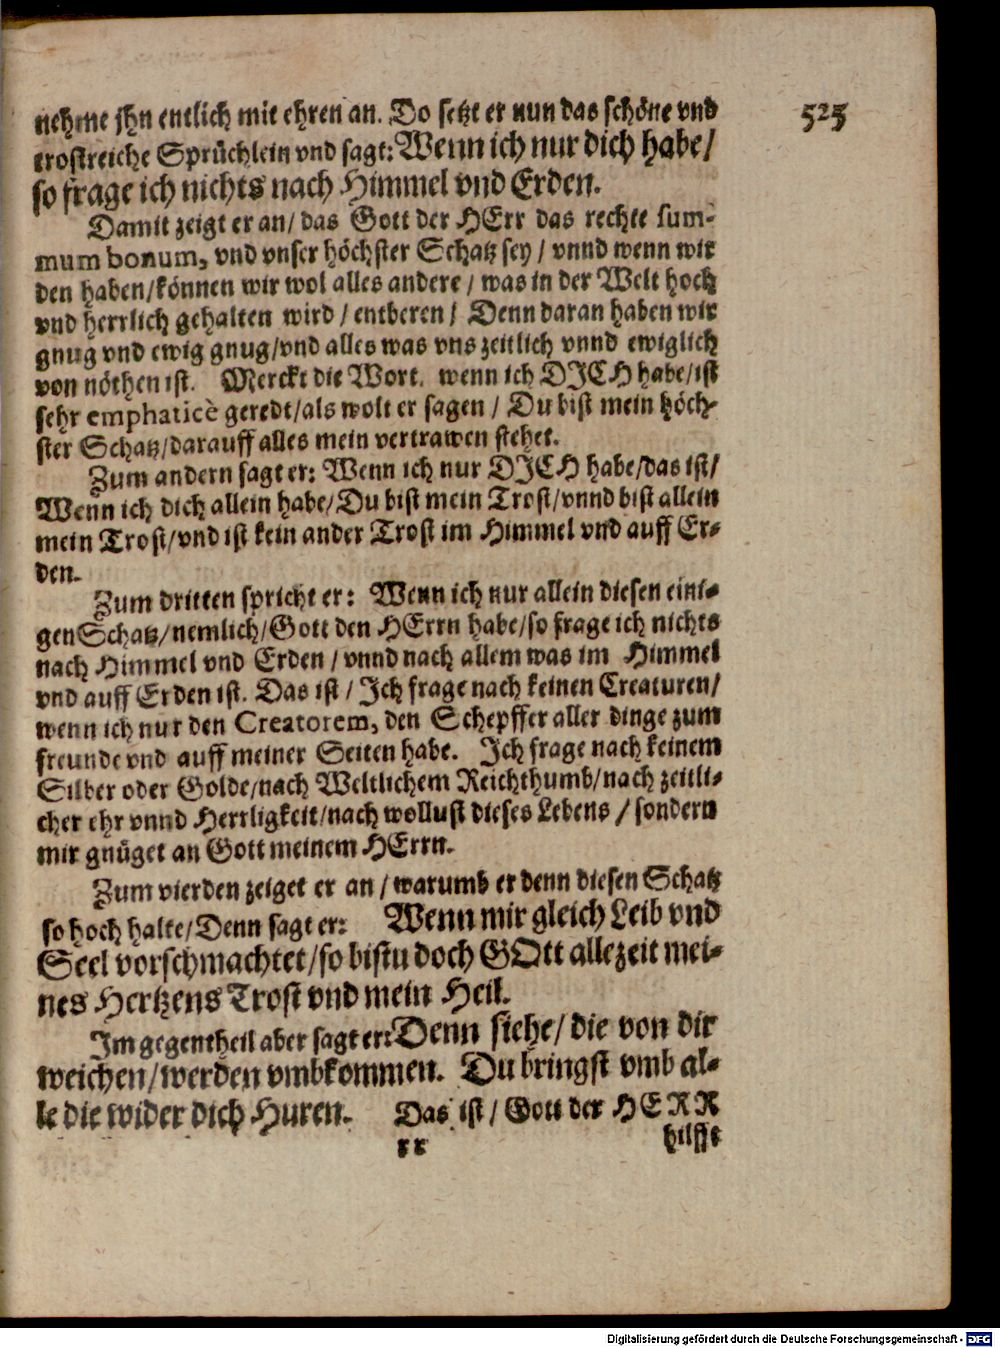 nehme jhn entlich mit ehren an. Do setzt er nun das schöne vnd
525
trostreiche Sprüchlein vnd sagt: Wenn ich nur dich habe/
so frage ich nichts nach Himmel vnd Erden.
Damit zeigt er an/ das Gott der HErr das rechte sum-
mum bonum, vnd vnser höchster Schatz sey/ vnnd wenn wir
den haben/können wir wol alles andere/ was in der Welt hoch
vnd herrlich gehalten wird/ entberen/ Denn daran haben wir
gnug vnd ewig gnug/vnd alles was vns zeitlich vnnd ewiglich
von nöthen ist. Merckt die Wort. wenn ich DJCH habe/ist
sehr emphaticè geredt/als wolt er sagen/ Du bist mein höch-
ster Schatz/darauff alles mein vertrawen stehet.
Zum andern sagt er: Wenn ich nur DJCH habe/das ist/
Wenn ich dich allein habe/Du bist mein Trost/vnnd bist allein
mein Trost/vnd ist kein ander Trost im Himmel vnd auff Er-
den.
Zum dritten spricht er: Wenn ich nur allein diesen eini-
gen Schatz/nemlich/Gott den HErrn habe/so frage ich nichts
nach Himmel vnd Erden/ vnnd nach allem was im Himmel
vnd auff Erden ist. Das ist/ Jch frage nach keinen Creaturen/
wenn ich nur den Creatorem, den Schepffer aller dinge zum
freunde vnd auff meiner Seiten habe. Jch frage nach keinem
Silber oder Golde/nach Weltlichem Reichthumb/nach zeitli-
cher ehr vnnd Herrligkeit/nach wollust dieses Lebens/ sondern
mir gnüget an Gott meinem HErrn.
Zum vierden zeiget er an/warumb er denn diesen Schatz
so hoch halte/Denn sagt er: Wenn mir gleich Leib vnd
Seel vorschmachtet/so bistu doch GOtt allezeit mei-
nes Hertzens Trost vnd mein Heil.
Im gegentheil aber sagt er: Denn siehe/ die von dir
weichen/werden vmbkommen. Du bringst vmb al-
le die wider dich Huren. Das ist/ Gott der HERR
rr hilfft
Digitalisierung gefördert durch die Deutsche Forschungsgemeinschaft - DFG